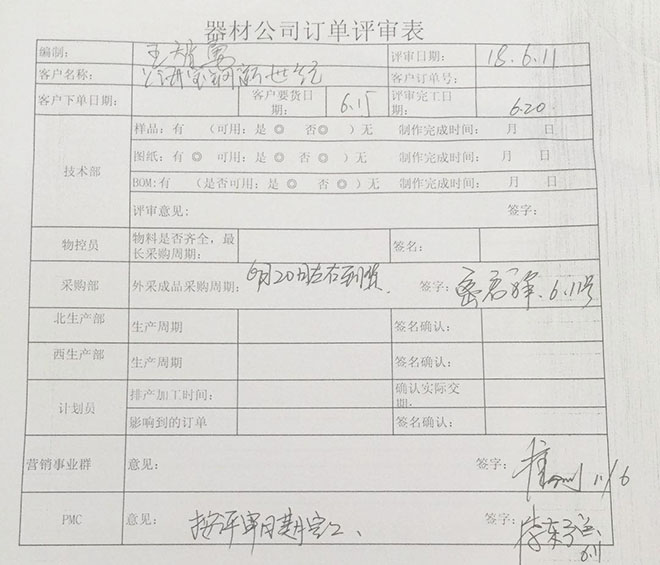 器材公司订单评审表
编制: 评审日期: 18.6.11
客户名称: 客户订单号:
客户下单日期: 客户要货日期: 6.15 评审完工日期: 6.20
技术部
样品: 有 （可用: 是 ◎ 否 ◎ ）无 制作完成时间: 月 日
图纸: 有 ◎ 可用: 是 ◎ 否 ◎ ）无 制作完成时间: 月 日
BOM: 有 （是否可用: 是 ◎ 否 ◎ ）无 制作完成时间: 月 日
评审意见: 签字:
物控员 物料是否齐全，最长采购周期: 签名:
采购部 外采成品采购周期: 6月20日左右到货. 签字: 6.11号
北生产部 生产周期 签名确认:
西生产部 生产周期 签名确认:
计划员 排产加工时间: 确认实际交期:
影响到的订单 签名确认:
营销事业群 意见: 签字: 11/6
PMC 意见: 按评审日期完工、 签字: 6.11